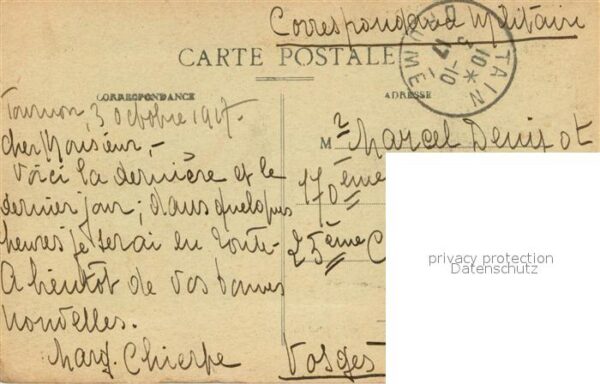 Correspondance Militaire
CARTE POSTALE
TAIN
DRÔME
10 *
-10
17
CORRESPONDANCE
ADRESSE
Tournon, 3 octobre 1917.
Cher Monsieur,-
Voici la dernière et le
dernier jour; dans quelques
heures je serai en route-
A bientôt de vos bonnes
nouvelles.
Marg. Chierpe
Mr Marcel Denizot
170ème
25ème C
Vosges
privacy protection
Datenschutz